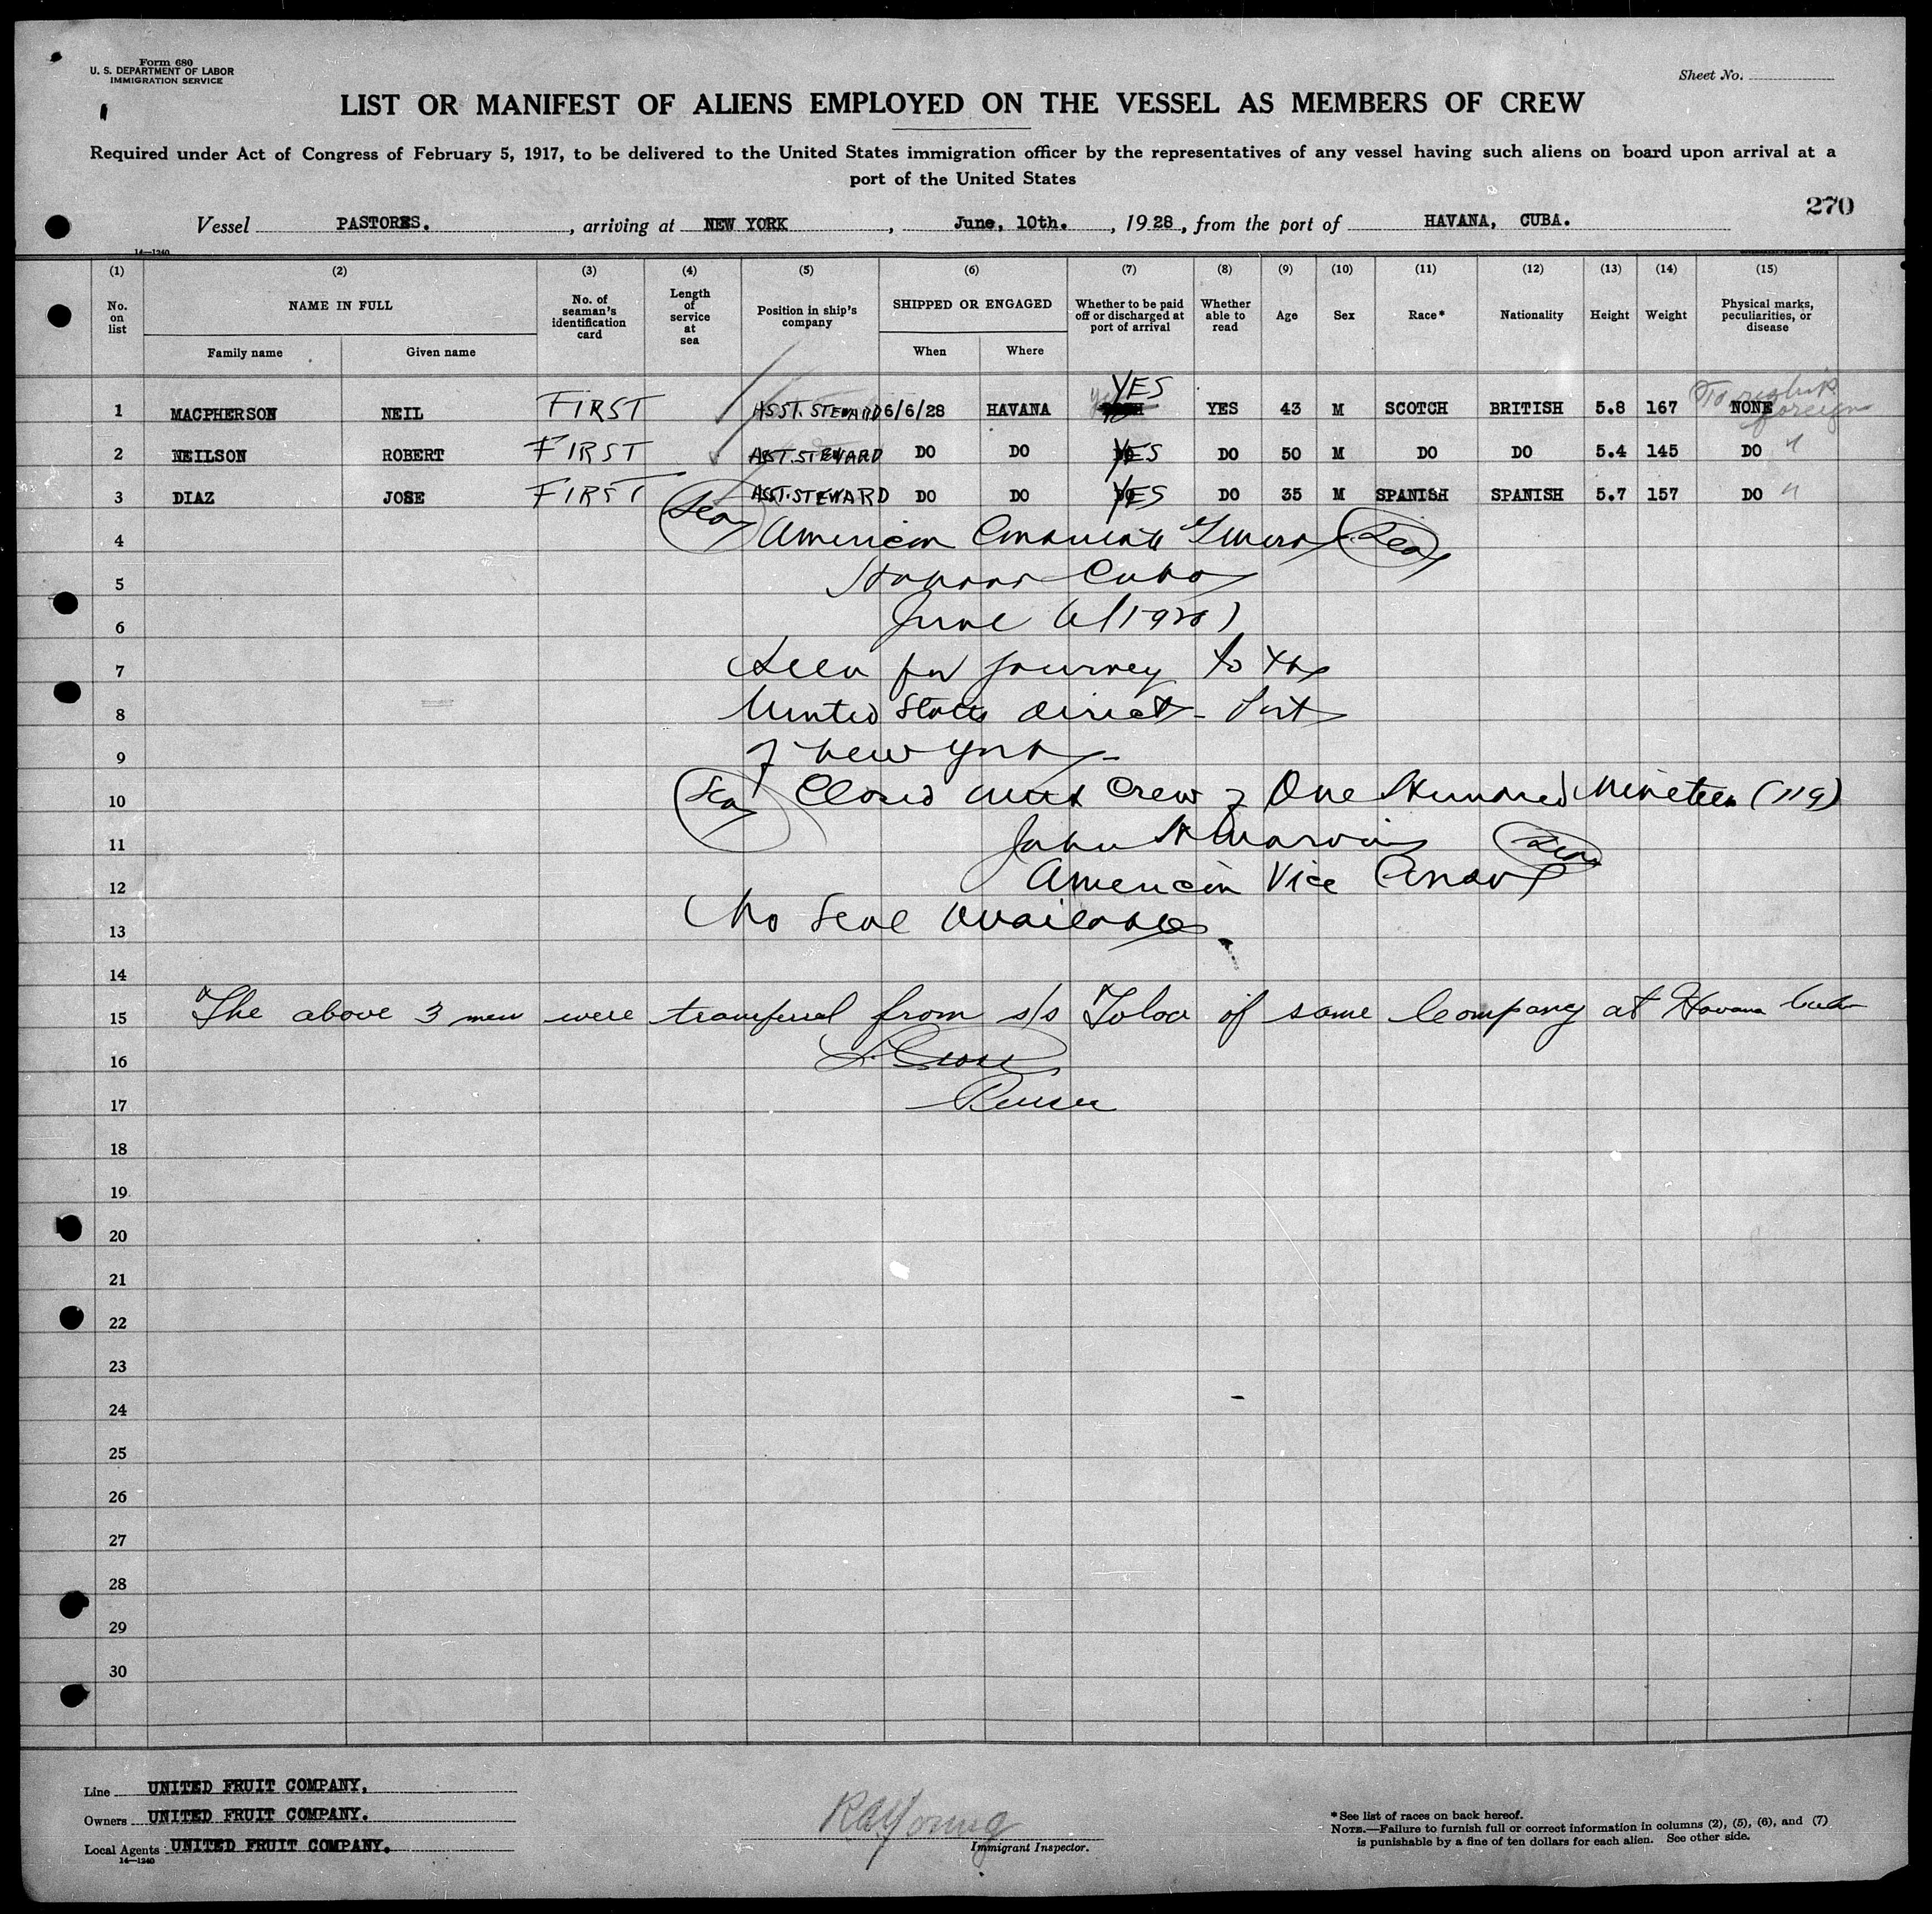 Form 680
U. S. DEPARTMENT OF LABOR
IMMIGRATION SERVICE
Sheet No.
LIST OR MANIFEST OF ALIENS EMPLOYED ON THE VESSEL AS MEMBERS OF CREW
Required under Act of Congress of February 5, 1917, to be delivered to the United States immigration officer by the representatives of any vessel having such aliens on board upon arrival at a
port of the United States
270
Vessel PASTORES. , arriving at NEW YORK , June, 10th. , 1928, from the port of HAVANA, CUBA.
14—1240
(1) (2) (3) (4) (5) (6) (7) (8) (9) (10) (11) (12) (13) (14) (15)
No. on list NAME IN FULL No. of seaman's identification card Length of service at sea Position in ship's company SHIPPED OR ENGAGED Whether to be paid off or discharged at port of arrival Whether able to read Age Sex Race* Nationality Height Weight Physical marks, peculiarities, or disease
Family name Given name When Where
1 MACPHERSON NEIL FIRST ASST. STEWARD 6/6/28 HAVANA YES YES 43 M SCOTCH BRITISH 5.8 167 NONE To reship foreign
2 NEILSON ROBERT FIRST ASST. STEWARD DO DO YES DO 50 M DO DO 5.4 145 DO "
3 DIAZ JOSE FIRST ASST. STEWARD DO DO YES DO 35 M SPANISH SPANISH 5.7 157 DO "
4 Seal American Consulate General Seal
5 Havana Cuba
6 June 6/1928)
7 Seen for journey to the
8 United States direct - Port
9 of New York -
10 Seal Closed with Crew of One Hundred Nineteen (119)
11 John H Marvin Seal
12 American Vice Consul
13 No Seal Available.
14
15 The above 3 men were transferred from s/s Toloa of same Company at Havana Cuba
16
17 Purser
18
19
20
21
22
23
24
25
26
27
28
29
30
Line UNITED FRUIT COMPANY,
Owners UNITED FRUIT COMPANY.
Local Agents UNITED FRUIT COMPANY.
14—1240
RA Young
Immigrant Inspector.
*See list of races on back hereof.
NOTE.—Failure to furnish full or correct information in columns (2), (5), (6), and (7)
is punishable by a fine of ten dollars for each alien. See other side.